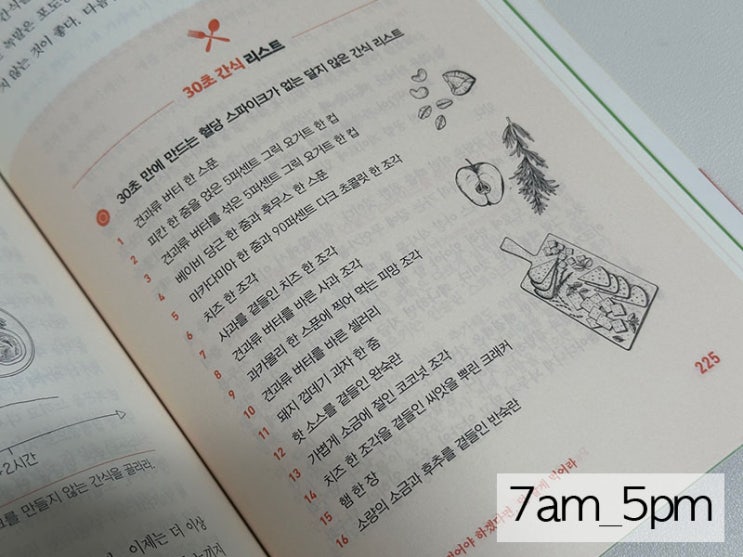 간식을
녹말은 포도당
지 않는 것이 좋다. 다음
+2시간
크를 만들지 않는 간식을 골라라.
이제는 더 이상
까지
30초 간식 리스트
30초 만에 만드는 혈당 스파이크가 없는 달지 않은 간식 리스트
1 견과류 버터 한 스푼
2 피칸 한 줌을 얹은 5퍼센트 그릭 요거트 한 컵
3 견과류 버터를 섞은 5퍼센트 그릭 요거트 한 컵
4 베이비 당근 한 줌과 후무스 한 스푼
5 마카다미아 한 줌과 90퍼센트 다크 초콜릿 한 조각
6 치즈 한 조각
7 사과를 곁들인 치즈 한 조각
8 견과류 버터를 바른 사과 조각
9 과카몰리 한 스푼에 찍어 먹는 피망 조각
10 견과류 버터를 바른 셀러리
11 돼지 껍데기 과자 한 줌
12 핫 소스를 곁들인 완숙란
13 가볍게 소금에 절인 코코넛 조각
14 치즈 한 조각을 곁들인 씨앗을 뿌린 크래커
15 햄 한 장
16 소량의 소금과 후추를 곁들인 반숙란
225
7am_5pm